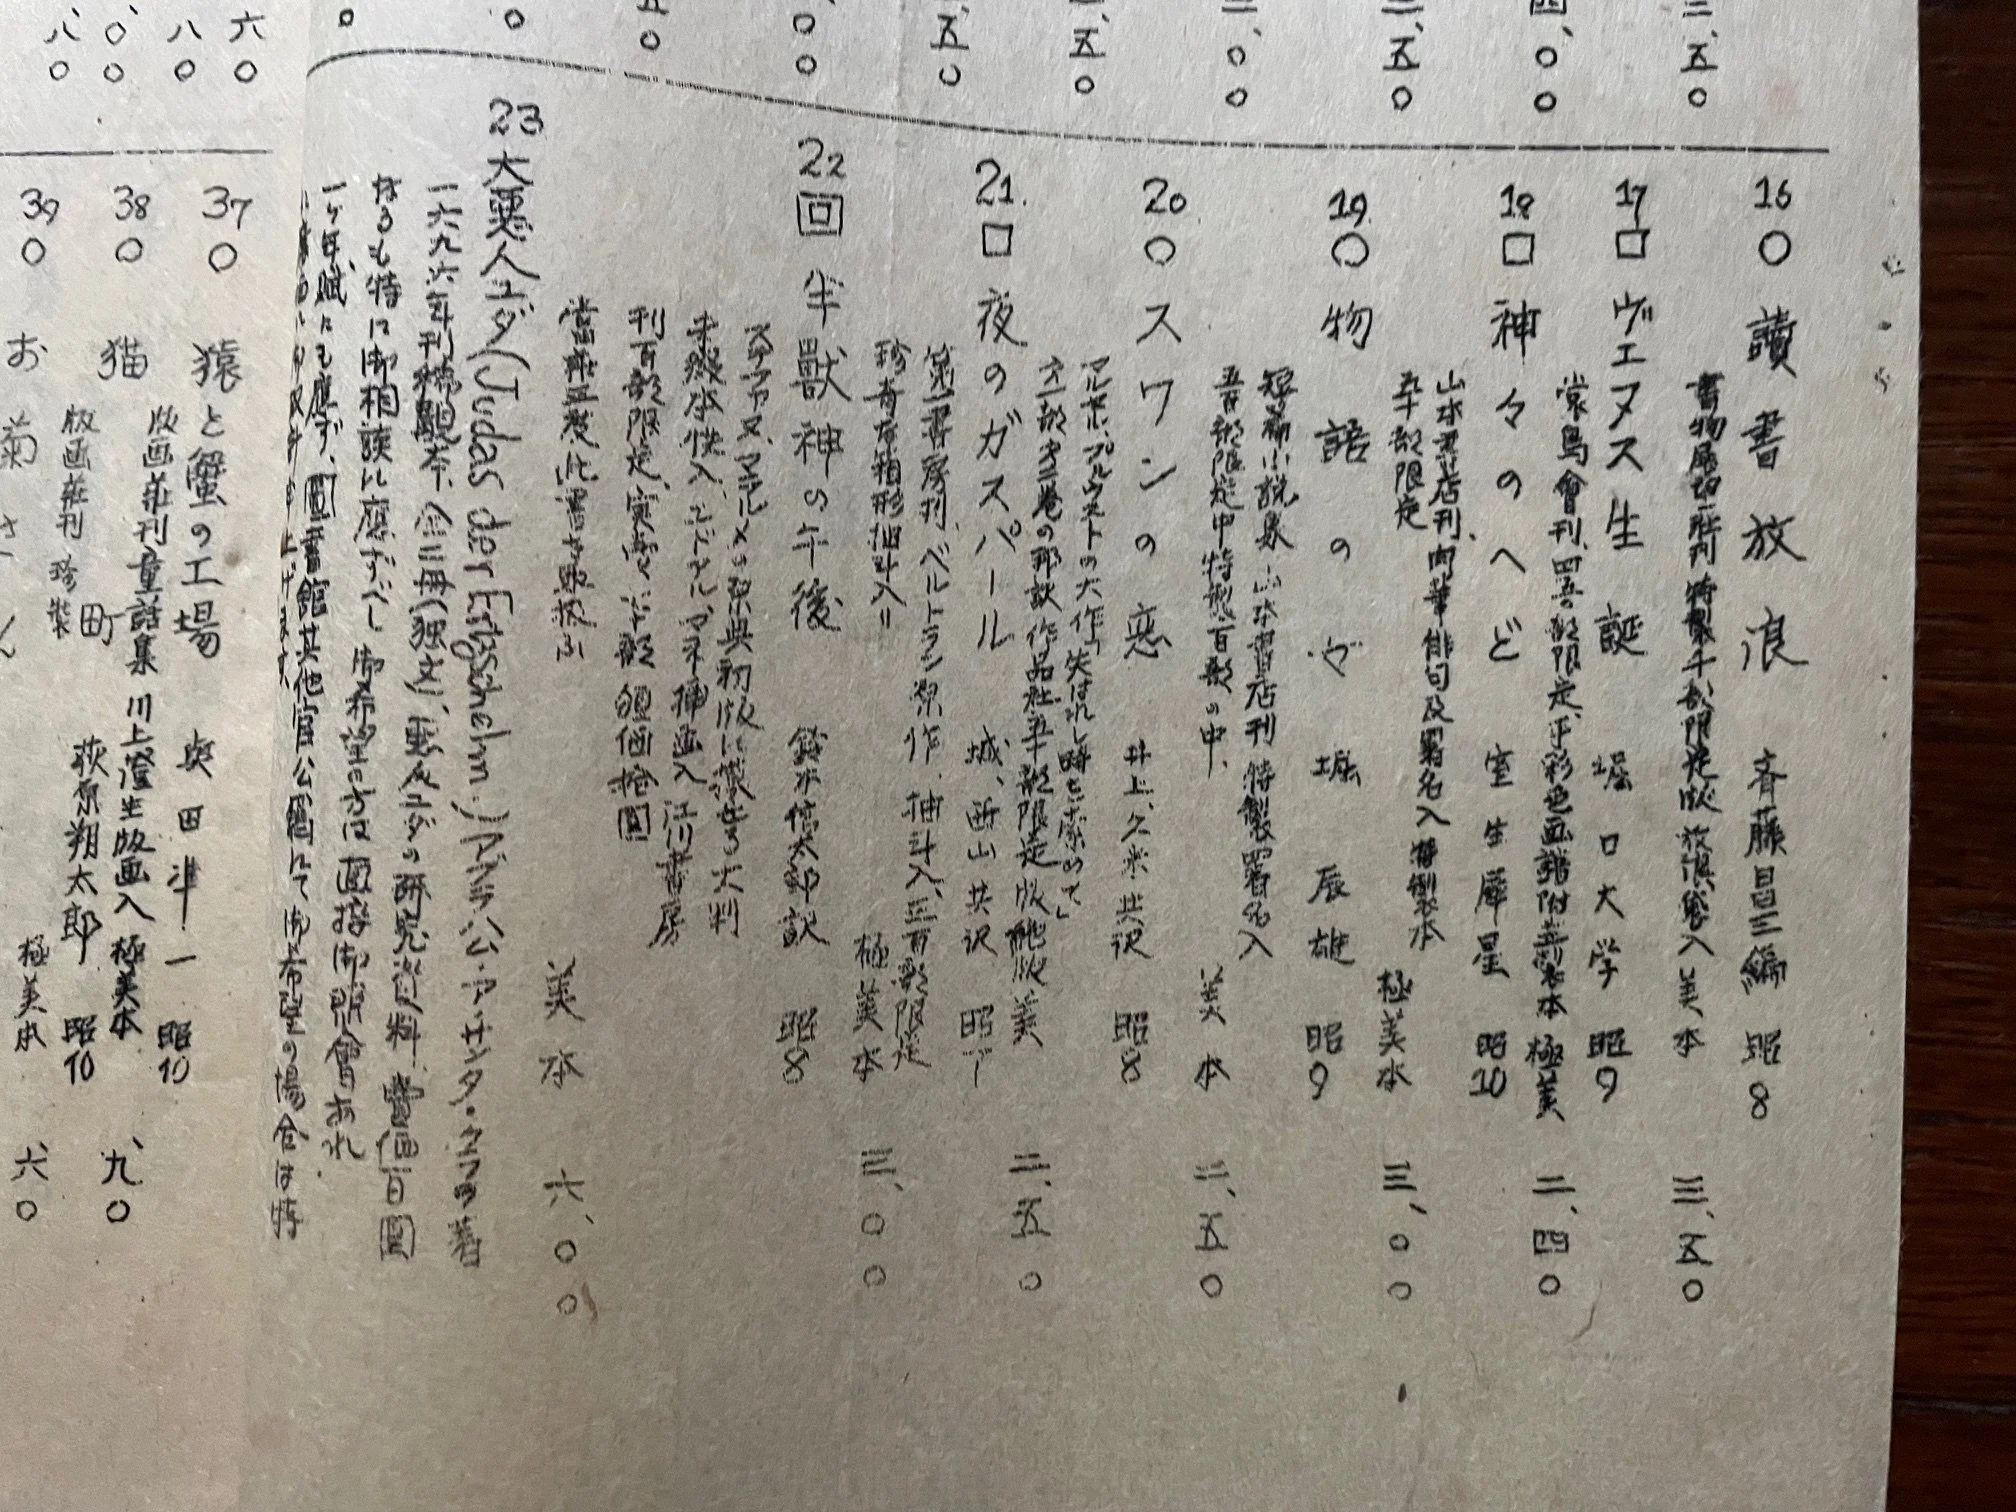 三、五〇
四、〇〇
三、五〇
三、〇〇
五〇
五〇
〇〇
五〇
〇
〇
六〇
八〇
〇、〇〇
八〇
16 〇 讀書放浪 斉藤昌三編 昭8
書物展望社刊 特製千部限定版 美本 三、五〇
17 □ ヴェヌス生誕 堀口大学 昭9
裳鳥會刊、四五〇部限定、手彩色画譜附 並製本 極美 二、四〇
18 □ 神々のへど 室生犀星 昭10
山本書店刊、肉筆俳句及署名入 特製本
五十部限定 極美本 三、〇〇
19 〇 物語の女 堀辰雄 昭9
短篇小説集 山本書店刊 特製署名入
五百部限定中特製百部の中、 美本 二、五〇
20 〇 スワンの恋 井上、久米共訳 昭8
マルセル・プルウストの大作「失はれし時を索めて」
第一部第二巻の邦訳 作品社五十部限定版 美 二、五〇
21 □ 夜のガスパール 城、西山共訳 昭
第一書房刊、ベルトラン原作、抽斗入、三百部限定
珍奇な箱形抽斗入 極美本 三、〇〇
22 回 半獣神の午後 鈴木信太郎訳 昭8
ステファヌ、マラルメの原典初版に據れる大判
未綴本帙入、エドアル、マネ挿画入 江川書房
刊百部限定、実費 部 頒価拾圓
美本 六、〇〇
23 大悪人ユダ(Judas der Erzschelm)アブラハム・ア・サンタ・クララ著
一六九六年刊 全二冊(独文)、悪人ユダの研究資料、賣価百圓
なるも特に御相談に應ずべし 御希望の方は直接御照會あれ
一ヶ年賦にも應ず、圖書館其他官公署にて御希望の場合は特
37 〇 猿と蟹の工場 奥田準一 昭10
版画荘刊 童話集 川上澄生版画入 極美本 、九〇
38 〇 猫町 萩原朔太郎 昭10
版画荘刊 珍装 極美本 六〇
39 〇 お菊さん